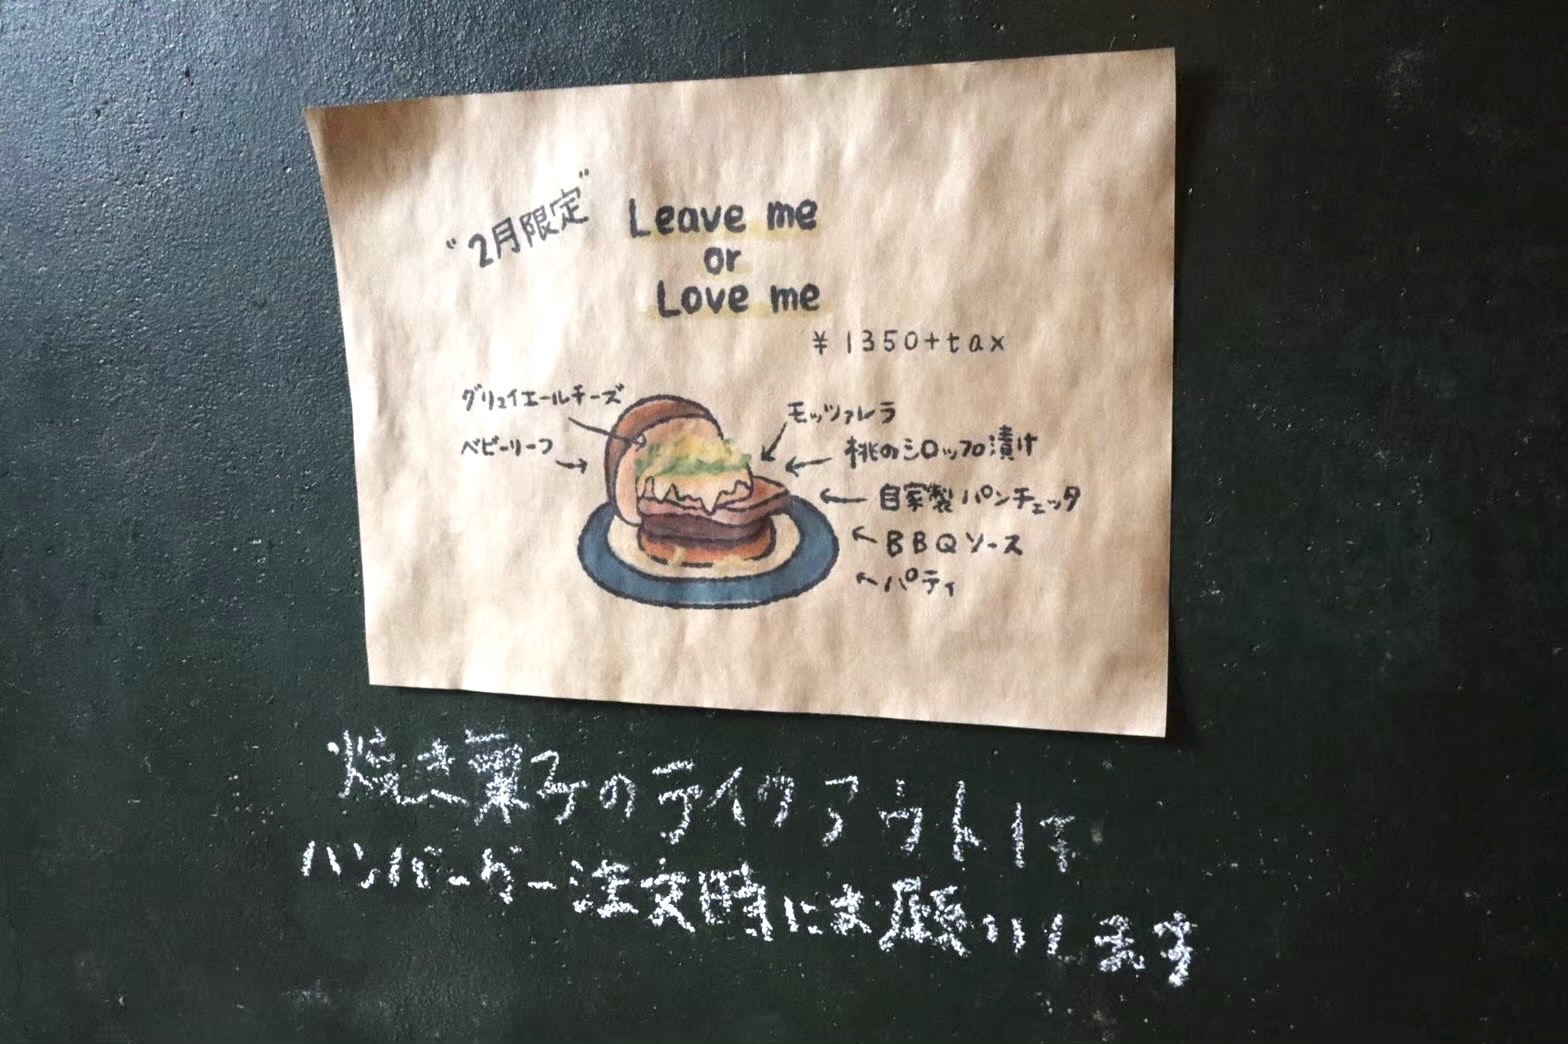 "2月限定"
Leave me
or
Love me
¥1350+tax
グリュイエールチーズ
ベビーリーフ
モッツァレラ
桃のシロップ漬け
自家製パンチェッタ
BBQソース
パティ
焼き菓子のテイクアウトは
ハンバーガー注文時にお願いします